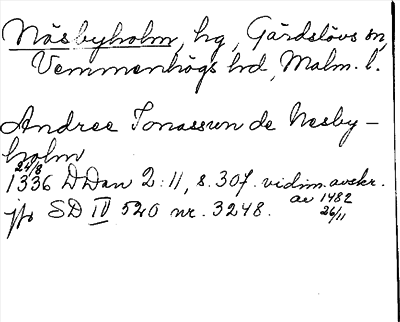 Näsbyholm, hg, Gärdslövs sn,
Vemmenhögs hd, Malm. l.
Andree Jonassun de Nesby-
holm
24/8
1336 DDan 2:11, s. 307. vidim. avskr.
av 1482
26/11
jfr SD IV 520 nr. 3248.